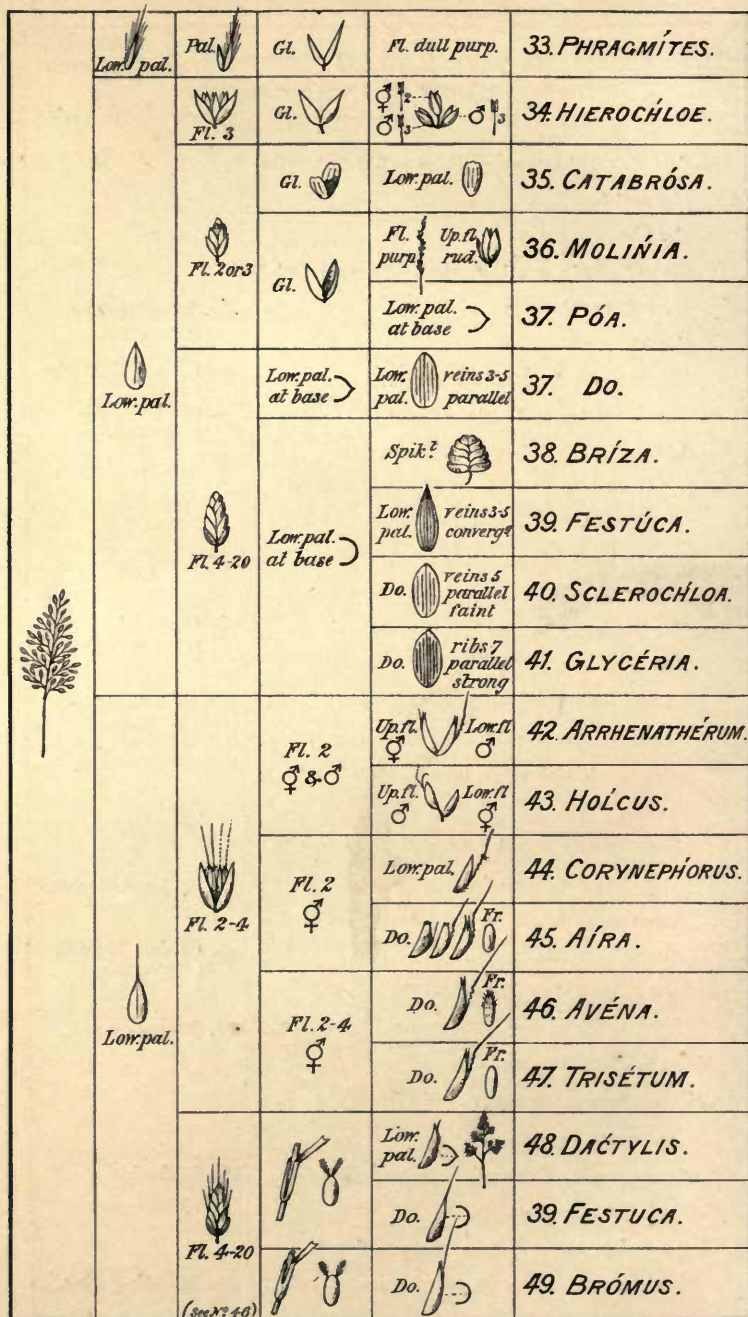 Low. pal.
Pal.
Gl.
Fl. dull purp.
33. PHRAGMÍTES.
Fl. 3
Gl.
⚥ 2
♂ 3
♂ 3
34. HIEROCHLOE.
Low. pal.
Fl. 2 or 3
Gl.
Low. pal.
35. CATABRÓSA.
Gl.
Fl. purp.
Up. fl. rud.
36. MOLIŃIA.
Low. pal.
at base
37. PÓA.
Fl. 4-20
Low. pal.
at base
Low. pal.
veins 3-5
parallel
37. Do.
Low. pal.
at base
Spikt.
38. BRÍZA.
Low. pal.
veins 3-5
convergt
39. FESTÚCA.
Do.
veins 5
parallel
faint
40. SCLEROCHLOA.
Do.
ribs 7
parallel
strong
41. GLYCÉRIA.
Low. pal.
Fl. 2-4
Fl. 2
⚥ & ♂
Up. fl.
⚥
Low. fl
♂
42. ARRHENATHÉRUM.
Up. fl.
♂
Low. fl
⚥
43. HOĹCUS.
Fl. 2
⚥
Low. pal.
44. CORYNEPHORUS.
Do.
Fr.
45. AÍRA.
Fl. 2-4
⚥
Do.
Fr.
46. AVÉNA.
Do.
Fr.
47. TRISÉTUM.
Fl. 4-20
(see No 46)
Low. pal.
48. DAĆTYLIS.
Do.
39. FESTUCA.
Do.
49. BRÓMUS.